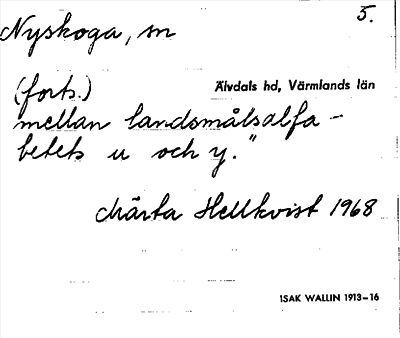 Nyskoga, sn 5.
(forts.) Älvdals hd, Värmlands län
mellan landsmålsalfa-
betets u och y."
Märta Hellkvist 1968
ISAK WALLIN 1913-16